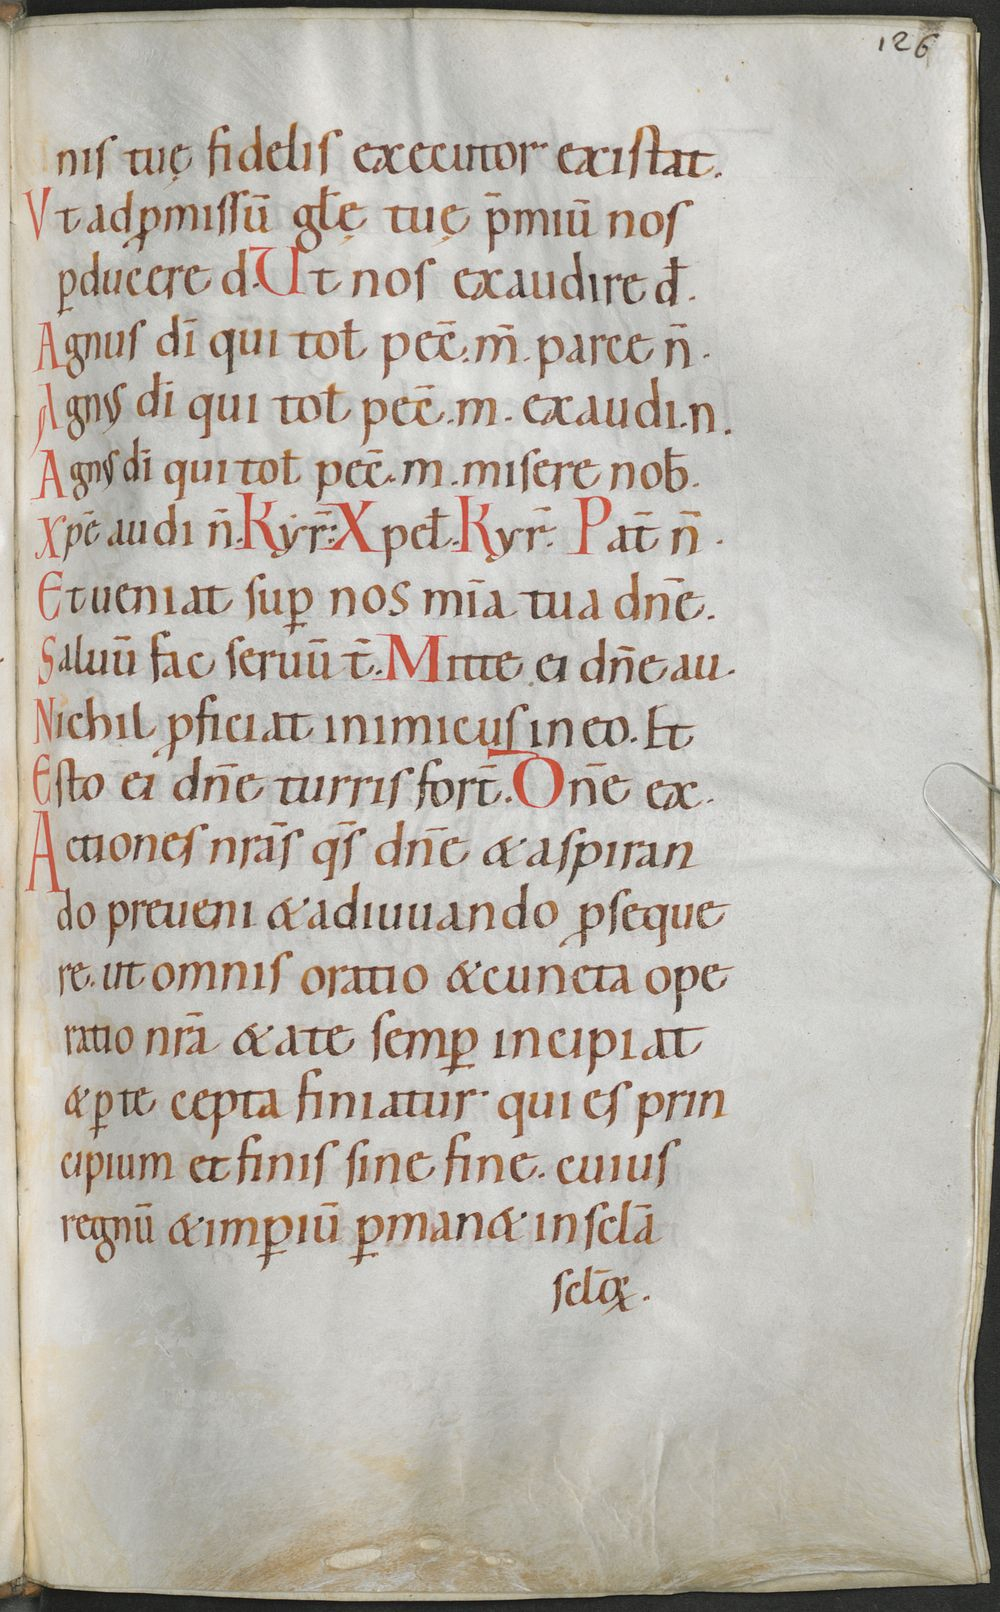 126
nis tuę fidelis executor existat.
Vt ad ꝓmissū gl̄ę tuę p̄miū nos
ꝑducere d. Ut nos exaudire đ.
Agnus dī qui tol̄ pec̄. m̄. parce n̄.
Agnus dī qui tol̄ pec̄. m. exaudi. n.
Agnus dī qui tol̄ pec̄. m. misere nob̄.
Xpē audi n̄. Kyr̄: Xpel̄. Kyr̄. Pat̄ n̄.
Et ueniat suꝑ nos mīa tua dn̄e.
Saluū fac seruū t̄. Mitte ei dn̄e au.
Nichil ꝓficiat inimicus in eo. Et
Esto ei dn̄e turris fort̄. Dn̄e ex.
Actiones nrās q̄s dn̄e & aspiran
do preueni & adiuuando ꝓseque
re. ut omnis oratio & cuncta ope
ratio nrā & a te semꝑ incipiat
& ꝑ te cepta finiatur. qui es prin
cipium et finis sine fine. cuius
regnū & imꝑiū ꝑman& in sclā
scl̄oꝝ.